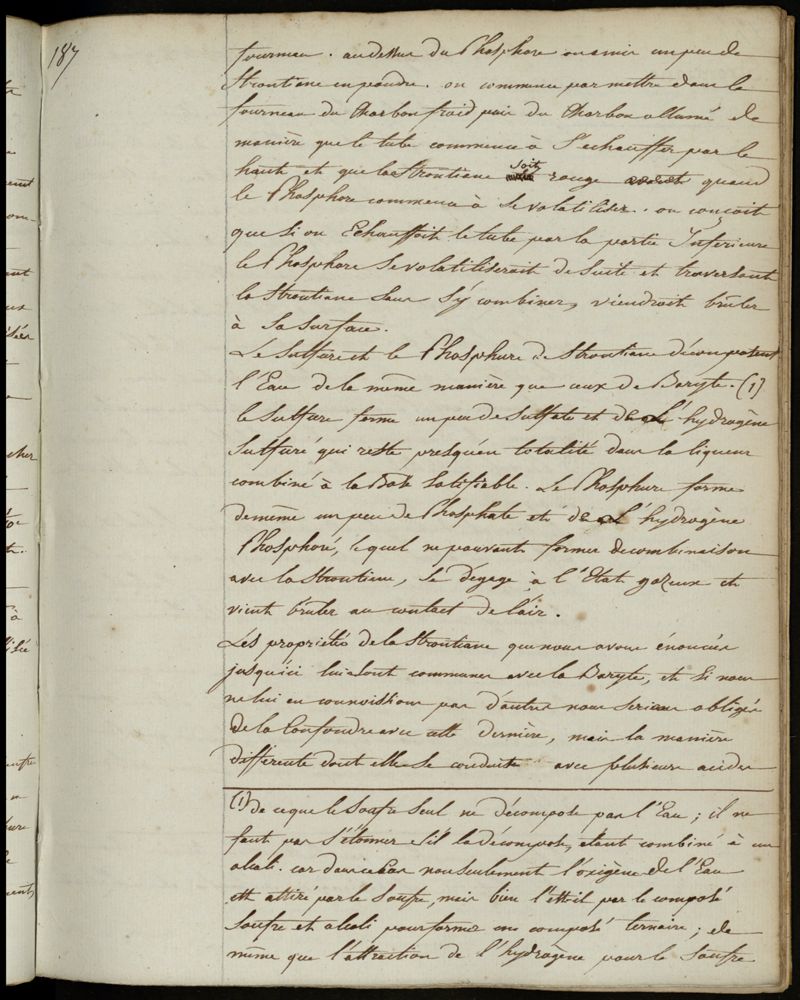 187
fourneau. audessus du Phosphore on a mis un peu de
Strontiane en poudre. on commence par mettre dans le
fourneau du Charbon froid puis du Charbon allumé de
maniere que le tube commence à S'echauffer par le
haut et que la Strontiane soit rouge quand
le Phosphore commence à Se volatiliser. on conçoit
que si on Echauffoit le tube par la partie Inferieure
le Phosphore Se volatiliserait de Suite et traversant
la Strontiane Sans S'y combiner, viendroit brûler
à Sa Surface.
Le Sulfure et le Phosphure de Strontiane décomposent
l'Eau de la même maniere que ceux de Baryte. (1)
le Sulfure forme un peu de Sulfate et de l'hydrogène
Sulfuré qui reste presqu'en totalité dans la liqueur
combiné à la Base Salifiable. Le Phosphure forme
de même un peu de Phosphate et de l'hydrogène
Phosphoré, lequel ne pouvant former de combinaison
avec la Strontiane, Se dégage à l'Etat gazeux et
vient brûler au contact de l'air.
Les propriétés de la Strontiane que nous avons énoncées
jusqu'ici lui Sont communes avec la Baryte, et Si nous
ne lui en connoissions pas d'autres nous Serions obligés
de la Confondre avec cette Derniere, mais la maniere
différente dont elle Se conduit avec plusieurs acides
(1) De ce que le Soufre Seul ne Décompose pas l'Eau; il ne
faut pas S'étonner S'il la décompose, étant combiné à un
alcali. car dans ce Cas non Seulement l'oxigène de l'Eau
est attiré par le Soufre, mais bien l'est-il par le composé
Soufre et alcali pour former un composé ternaire; de
même que l'attraction de l'hydrogène pour le Soufre